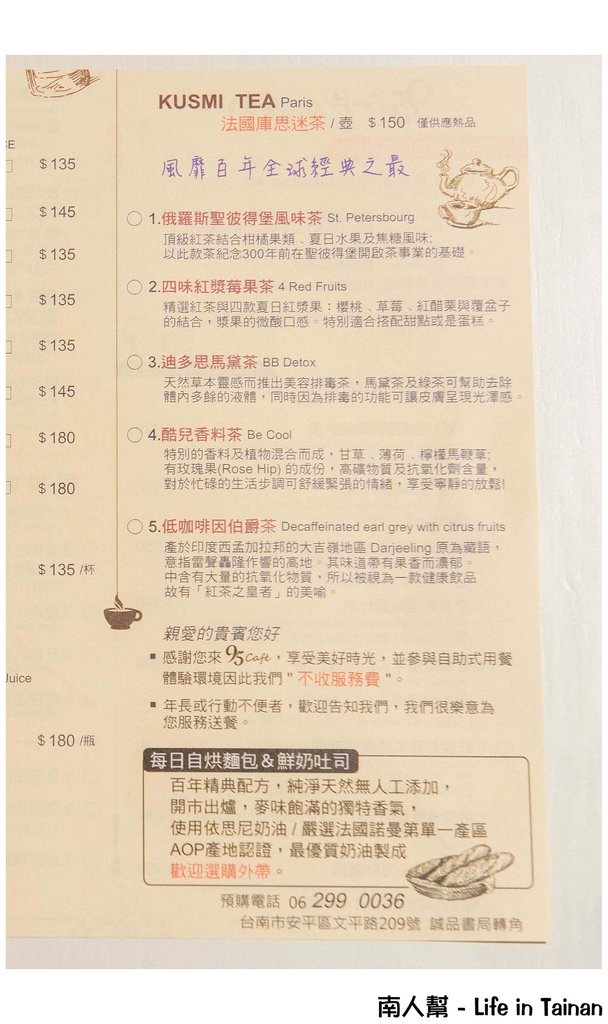 KUSMI TEA Paris
法國庫思迷茶 / 壺 $150 僅供應熱品
風靡百年全球經典之最
1.俄羅斯聖彼得堡風味茶 St. Petersbourg
頂級紅茶結合柑橘果類、夏日水果及焦糖風味;
以此款茶紀念300年前在聖彼得堡開啟茶事業的基礎。
2.四味紅漿莓果茶 4 Red Fruits
精選紅茶與四款夏日紅漿果：櫻桃、草莓、紅醋栗與覆盆子
的結合，漿果的微酸口感。特別適合搭配甜點或是蛋糕。
3.迪多思馬黛茶 BB Detox
天然草本靈感而推出美容排毒茶，馬黛茶及綠茶可幫助去除
體內多餘的液體，同時因為排毒的功能可讓皮膚呈現光澤感。
4.酷兒香料茶 Be Cool
特別的香料及植物混合而成，甘草、薄荷、檸檬馬鞭草;
有玫瑰果(Rose Hip) 的成份，高礦物質及抗氧化劑含量，
對於忙碌的生活步調可舒緩緊張的情緒，享受寧靜的放鬆!
5.低咖啡因伯爵茶 Decaffeinated earl grey with citrus fruits
產於印度西孟加拉邦的大吉嶺地區 Darjeeling 原為藏語，
意指雷聲轟隆作響的高地。其味道帶有果香而濃郁。
中含有大量的抗氧化物質，所以被視為一款健康飲品
故有「紅茶之皇者」的美喻。
親愛的貴賓您好
感謝您來 95 Cafe，享受美好時光，並參與自助式用餐
體驗環境因此我們 " 不收服務費 "。
年長或行動不便者，歡迎告知我們，我們很樂意為
您服務送餐。
每日自烘麵包＆鮮奶吐司
百年精典配方，純淨天然無人工添加，
開市出爐，麥味飽滿的獨特香氣，
使用依思尼奶油 / 嚴選法國諾曼第單一產區
AOP產地認證，最優質奶油製成
歡迎選購外帶。
預購電話 06 299 0036
台南市安平區文平路209號 誠品書局轉角
CE
$135
$145
$135
$135
$135
$145
$180
$180
$135 /杯
Juice
$180 /瓶
南人幫 - Life in Tainan